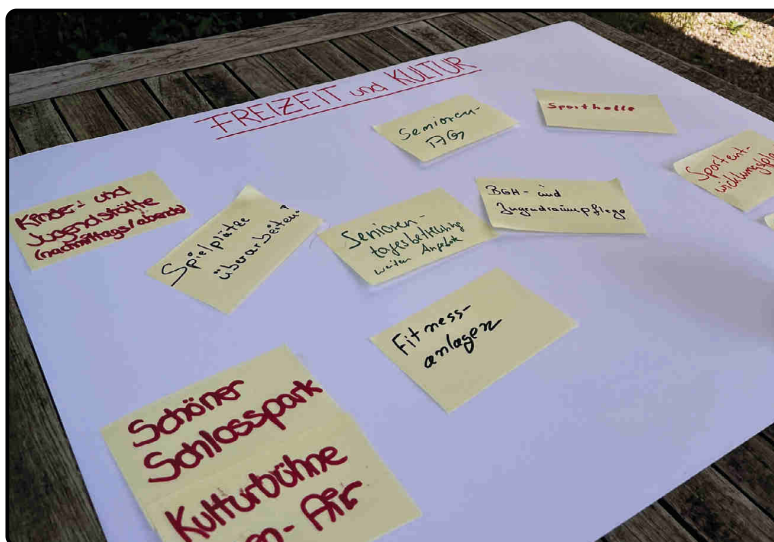 FREIZEIT und KULTUR
Senioren-
AG
Sporthalle
Kinder- und
Jugendstätte
(nachmittags/abends)
Spielplätze
überarbeiten!
Senioren-
tagesbetreuung
weitere Angebote
BGH- und
Jugendraumpflege
Sportent-
wicklungsplan
Fitness-
anlagen
Schöner
Schlosspark
Kulturbühne
Air